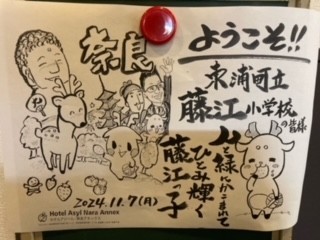 ようこそ!!
奈良
東浦町立
藤江小学校の皆様
山と緑にかこまれて
ひとみ輝く
藤江っ子
2024.11.7(月)
Hotel Asyl Nara Annex